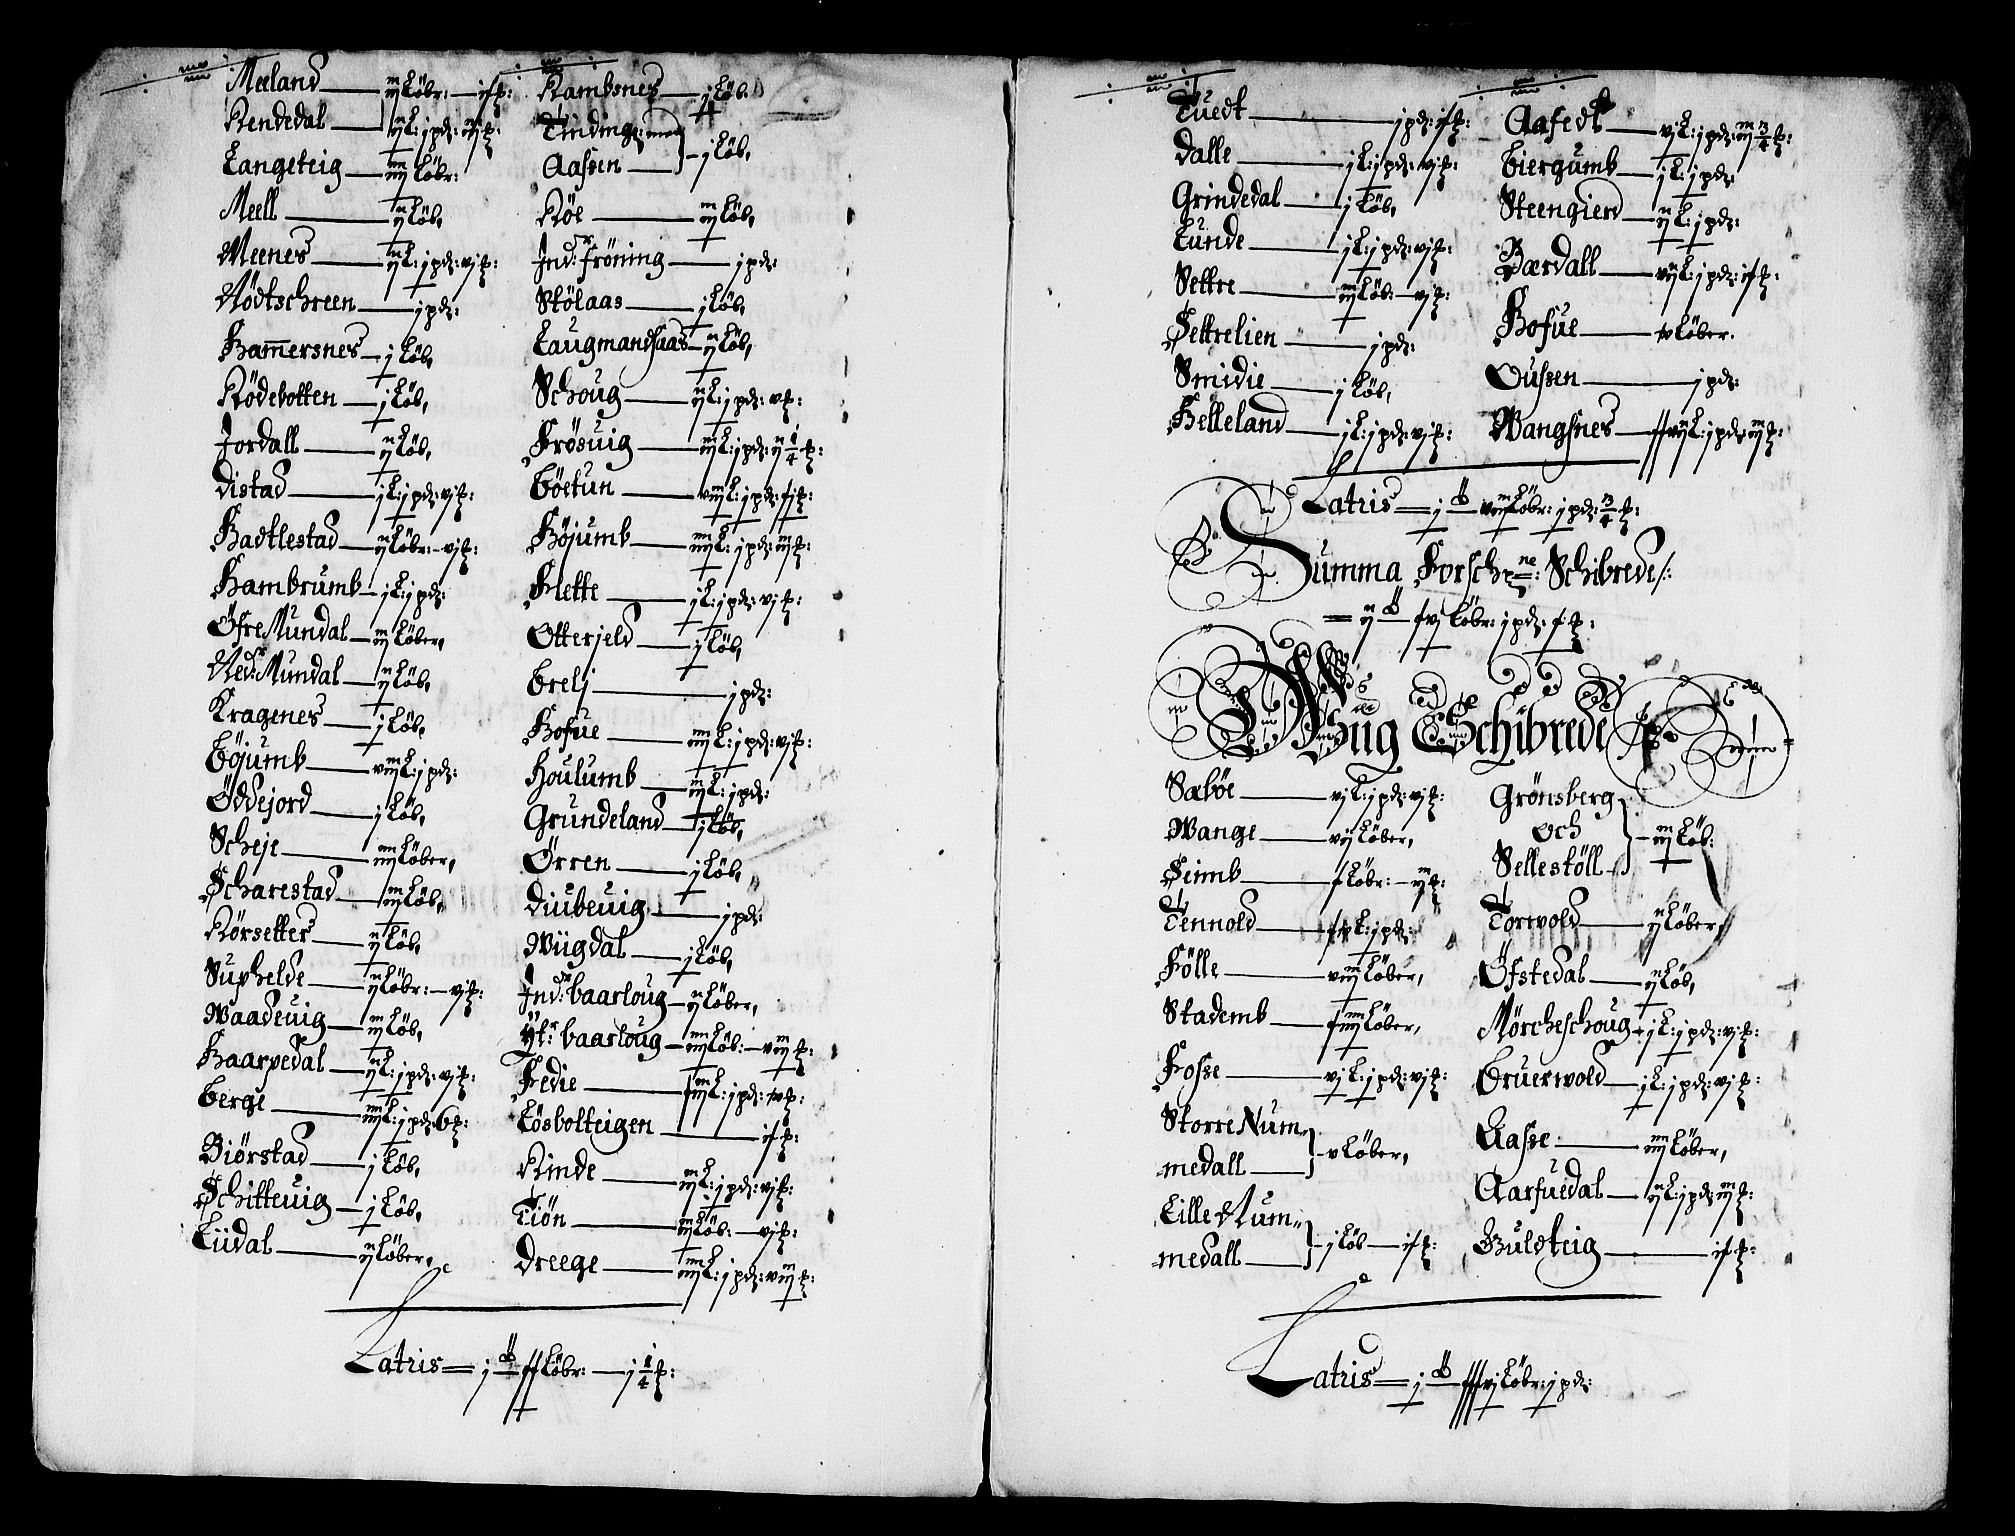 Meeland — iij Löbr: — is ℔:
Rendedal — ij L: j pd: ij ℔:
Langeteig — iiij Löbr:
Mell — ij Löb,
Meenes — ij L: j pd: vj ℔:
Nödtschreen — j pd:
Hamersnes — j Löb,
Rödebotten — j Löb,
Jordall — ij Löb,
Distad — j L: j pd: vj ℔:
Hadtlestad — ij Löbr: — vj ℔:
Hambrumb — j L: j pd:
Öfre Mundal — iij Löber,
Ned: Mundal — ij Löb,
Kragenes — j Löb,
Böjumb — viij L: j pd:
Öddejord — j Löb,
Scheje — iiij Löber,
Scharestad — iij Löb,
Rörsetter — ij Löb,
Suphelde — ij Löbr: — vj ℔:
Waadeuig — iij Löb,
Haarpedal — ij L: j pd: vj ℔:
Berge — iiij L: j pd: 6 ℔:
Biörstad — j Löb,
Schitteuig — j Löb,
Liidal — ij Löber,
Rambsnes — j Löb,
Tindinge: med
Aassen — j Löb,
Röe — iij Löb,
Ind: Fröning — j pd:
Stölaas — j Löb,
Laugmandsaas — ij Löb,
Schoug — ij L: j pd: v ℔:
Frösuig — iiij L: j pd: ij 1/4 ℔:
Böetun — viij L: j pd:
Höjumb — iiij L: j pd: iij ℔:
Flette — j L: j pd: vj ℔:
Otterjeld — j Löb,
Brelj — j pd:
Hofue — iiij L: j pd: vj ℔:
Houlumb — iij L: j pd:
Grundeland — j Löb,
Örren — j Löb,
Diubeuig — j pd:
Wiigdal — j Löb,
Ind: Baarloug — ij Löber,
Ÿt: Baarloug — iiij Löb: — viij ℔:
Fedie — L: j pd:
Lösbolteigen — is ℔:
Rinde — iij L: j pd: vj ℔:
Tiön — iij Löb: — vj ℔:
Dreege — iiij L: j pd: viij ℔:
Latris = j Löbr: — j 1/4 ℔:
Tuedt — j pd: is ℔:
Dalle — j L: j pd: vj ℔:
Grindedal — j Löb,
Lunde — j L: j pd: vj ℔:
Settre — iij Löb: — vj ℔:
Settrelien — j pd:
Smidie — j Löb,
Helleland — j L: j pd: vj ℔:
Aafedt — vj L: j pd: iij 3/4 ℔:
Biergumb — j L: j pd:
Steengierd — ij L: j pd:
Bærdall — vij L: j pd: is ℔:
Hofue — Löber.
Oussen — j pd:
Wangsnes — L: j pd: iij ℔:
Latris = j viij Löbr: j pd: 3/4 ℔:
Summa Forschne: Schibrede /:
= ij Löbr: j pd:
Wiig Schibrede
Sæböe — vj L: j pd: vj ℔:
Wange — vij Löber,
Seimb — Löbr: — ij ℔:
Tennold — L: j pd:
Fölle — viij Löber,
Stademb — Löber,
Fosse — vj L: j pd: vj ℔:
Storre Num„
medall — v Löber,
Lille Num„
medall — j Löb — is ℔:
Grönsberg
och
Sellestöll — iij Löb:
Torwold — ij Löber,
Öfstedal — ij Löb,
Mörcheschoug — j L: j pd: vj ℔:
Bruerwold — j L: j pd: vj ℔:
Aasse — iiij Löber,
Aarfuedal — ij L: j pd: iij ℔:
Buldteig — is ℔:
Latris = j Löbr: j pd: